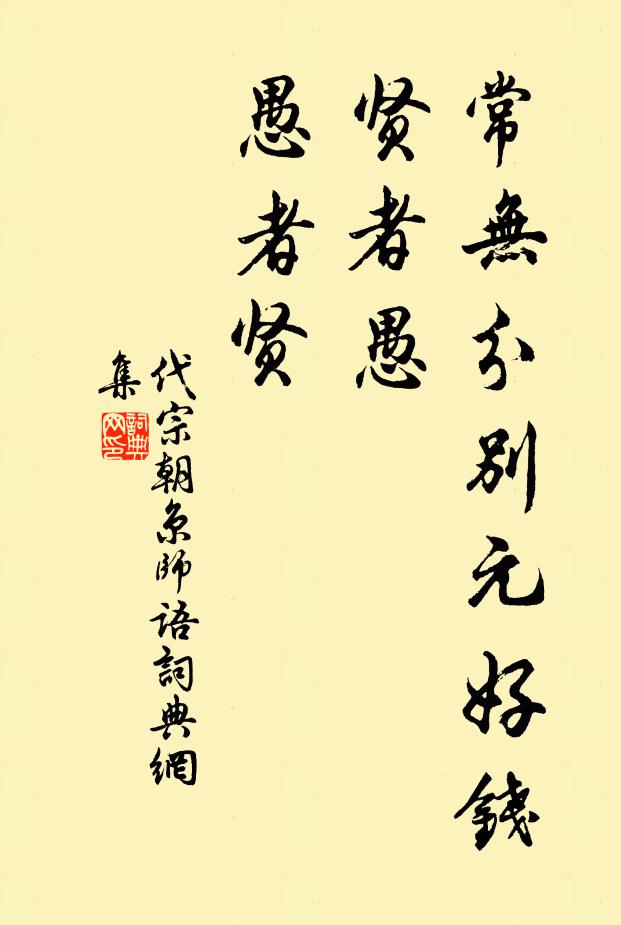 常無分別元好錢
贤者愚
愚者贤
代宗朝京師語詞典網
集
詞典
网印